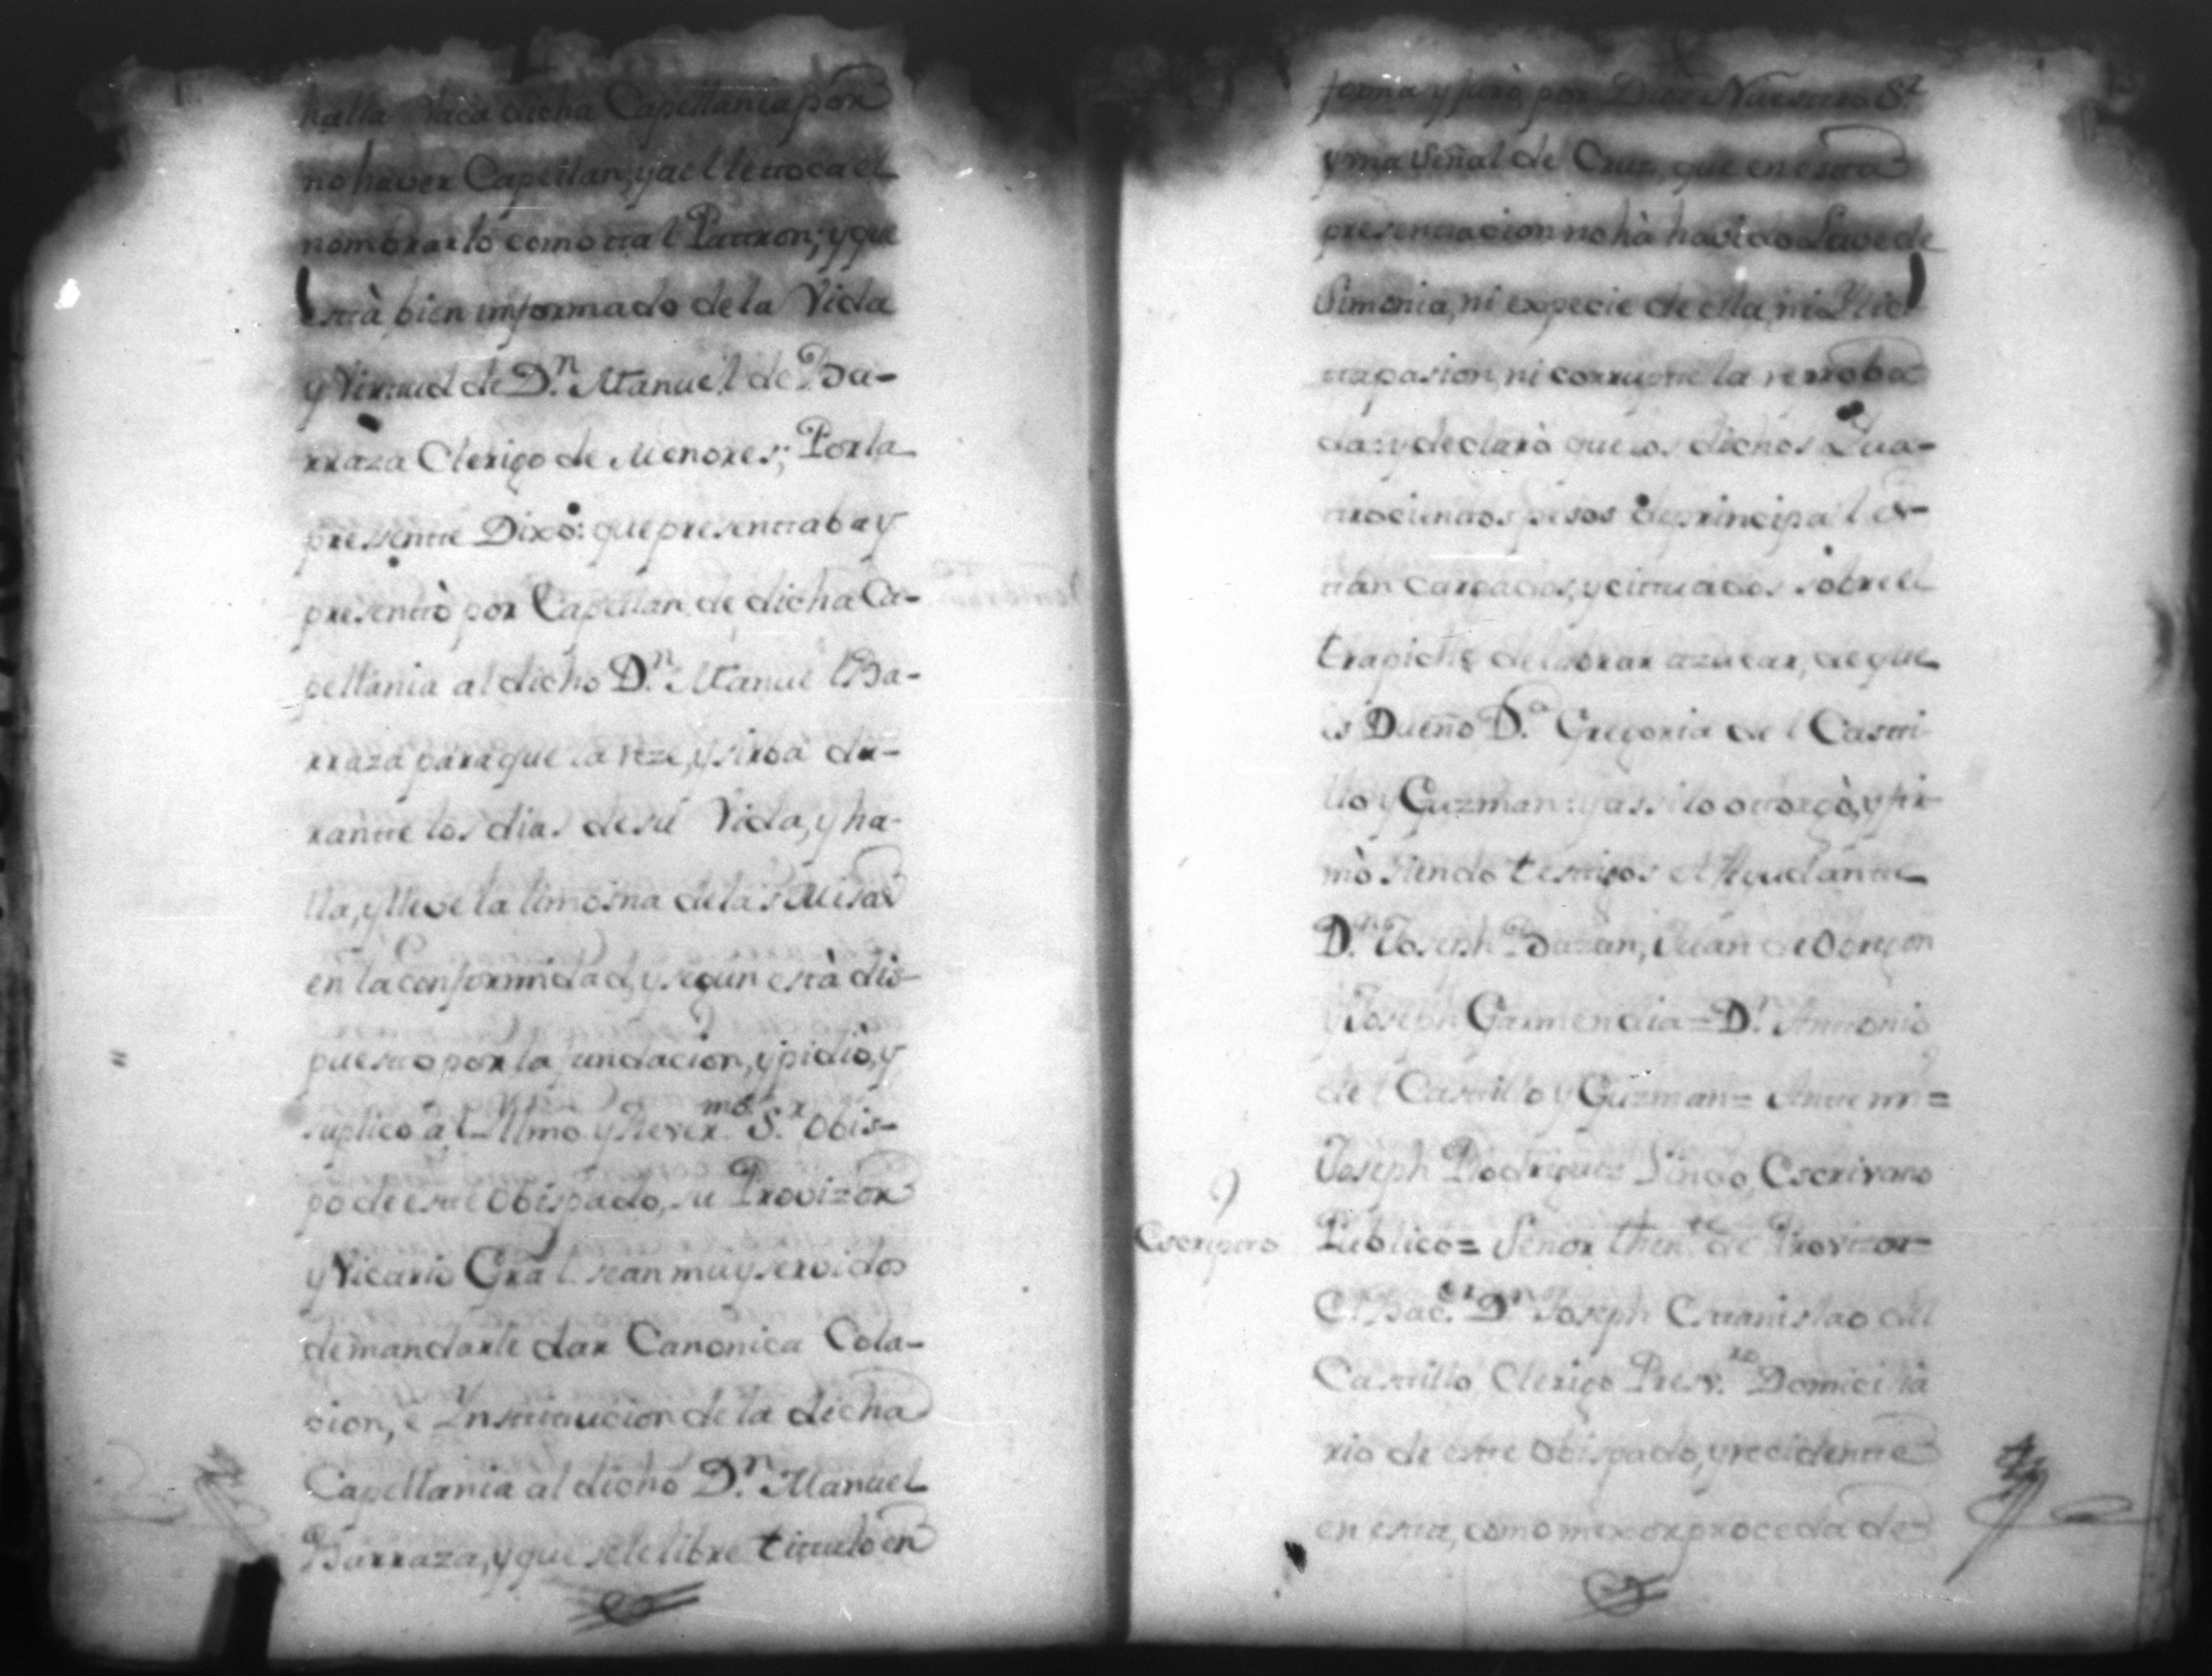 halla vaca dicha Capellania por
no haver Capellan, y a el le toca el
nombrarlo como tal Patron; y que
està bien informado de la Vida
y Virtud de D.ⁿ Manuel de Ba-
rraza Clerigo de Menores; Por la
presente Dixo: que presentaba y
presentò por Capellan de dicha Ca-
pellania al dicho D.ⁿ Manuel Ba-
rraza para que la reze, y sirva du-
rante los dias de su Vida, y ha-
lla, y lleve la limosna de las Misas
en la conformidad, y segun està dis-
puesto por la fundacion, y pidiò, y
suplicò al Illmo. y Rever.ᵐᵒ S.ʳ Obis-
po de este Obispado, su Provizor
y Vicario Gral. sean muy servidos
de mandarle dar Canonica Cola-
cion, è Institucion de la dicha
Capellania al dicho D.ⁿ Manuel
Barraza, y que se le libre titulo en
forma y jurò por Dios Nuestro S.ʳ
y una Señal de Cruz, que en esta
presentacion no hà havido Lave de
Simonia, ni expecie de ella, ni Ilici
ta pasion, ni corruptela reproba
da: y declarò que los dichos Qua-
trocientos pesos de principal es-
tàn cargados, y cituados sobre el
trapiche de labrar azucar, de que
es Dueño D.ᵃ Gregoria del Casti-
llo y Guzman: y assi lo otorgò, y fir-
mò siendo testigos el Ayudante
D.ⁿ Joseph Bazan, Juan de Obregon
y Joseph Garmendia = D.ⁿ Antonio
del Castillo y Guzman = Ante mi =
Joseph Rodriguez Escrivano
Escripto
Publico = Señor Then.ᵗᵉ de Provizor =
El Bac.ᵉʳ D.ⁿ Joseph Estanislao del
Castillo Clerigo Presv.ʳᵒ Domicilia
rio de este Obispado, y recidente
en esta, como mexor proceda de